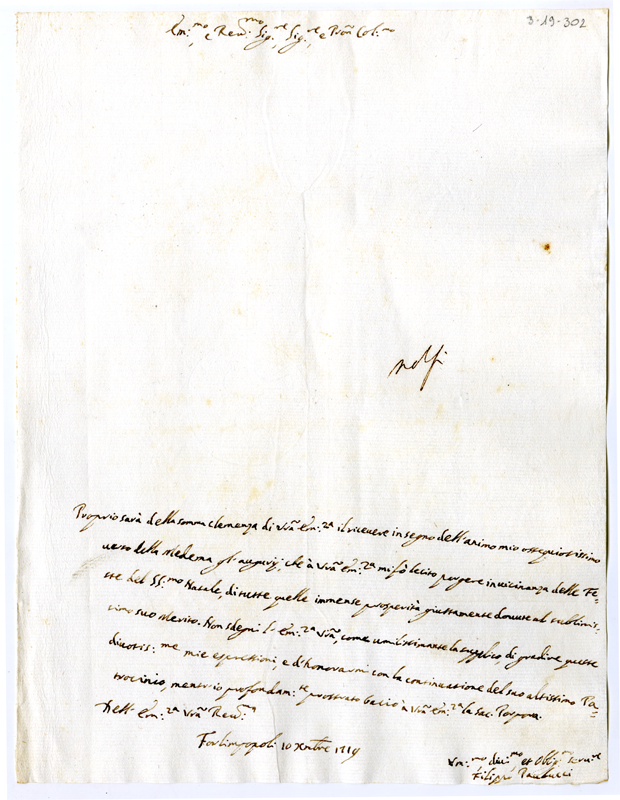 3-19-302
Em:mo e Revmo Sig:re Sig:re e Pron Col:mo
nolfi
Proprio sarà della somma clemenza di Vrã Em:za il ricevere in segno dell'animo mio ossequiosissimo
verso della Medema gl'augurij, che à Vrã Em:za mi fò lecito porgere in vicinanza delle Fe=
ste del SS:mo Natale, di tutte quelle immense prosperità giustamente dovute al sublimis=
simo suo Merito. Non sdegni l'Em:za Vrã, come umilissimamte la supplico, di gradire queste
divotis:me mie espressioni, e d'honorarmi con la continuazione del suo altissimo Pa=
trocinio, mentr'io profondam:te prostrato bacio à Vrã Em:za la Sac. Porpora.
Dell'Em:za Vrã Revma
Forlimpopoli 10 Xmbre 1719
Um:mo divmo et Obbg Servre
Filippo Paulucci